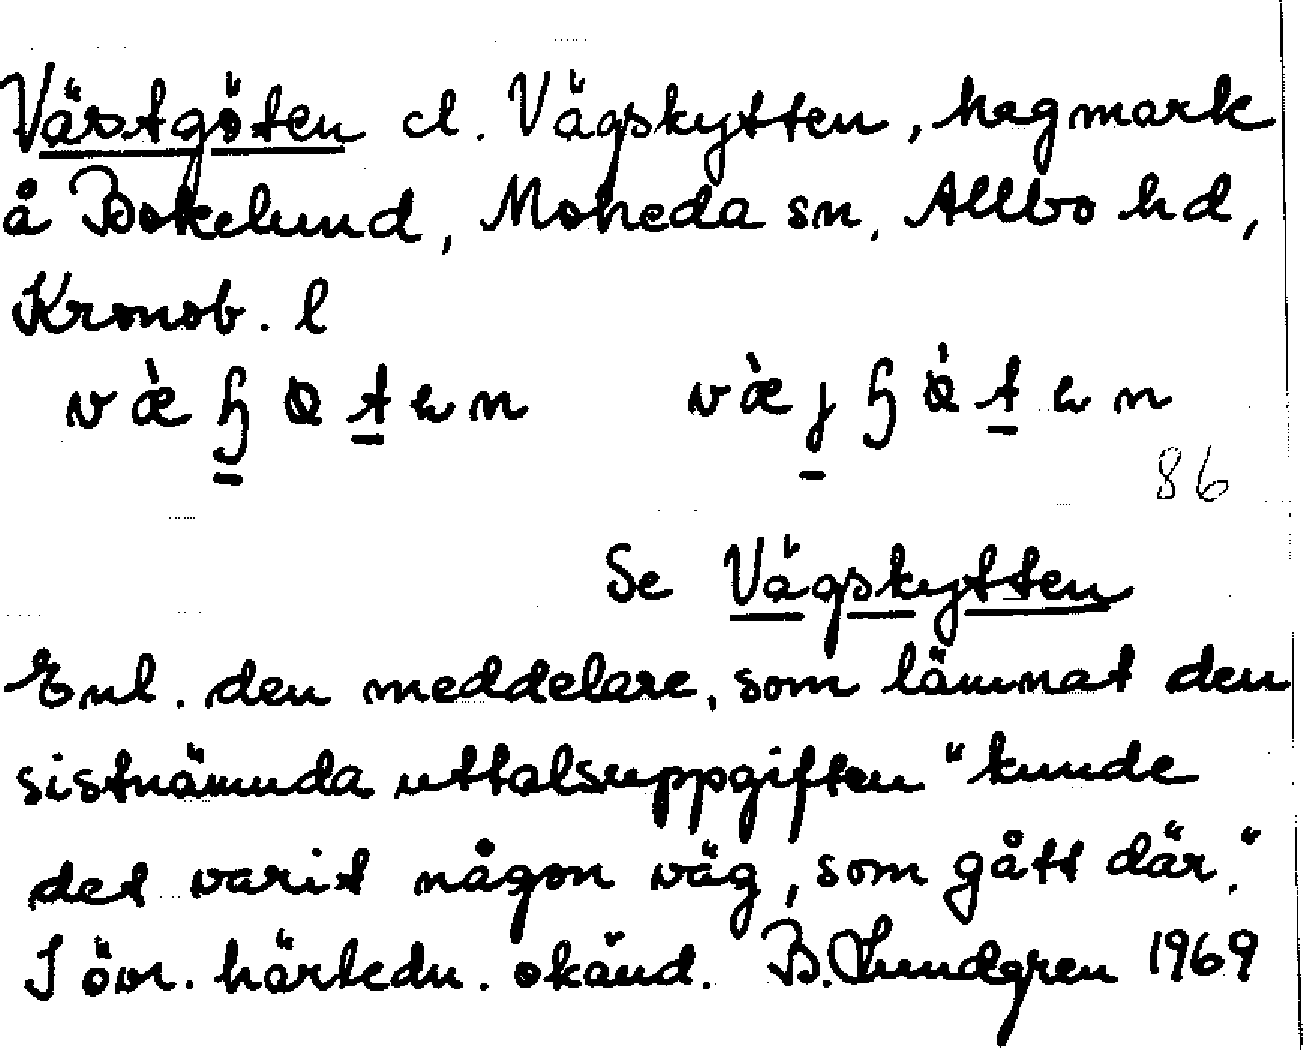 Västgöten el. Vägskytten, hagmark
å Bokelund, Moheda sn, Allbo hd,
Kronob. l
86
Se Vägskytten
Enl. den meddelare, som lämnat den
sistnämnda uttalsuppgiften "kunde
det varit någon väg, som gått där."
I övr. härledn. okänd. B. Lundgren 1969